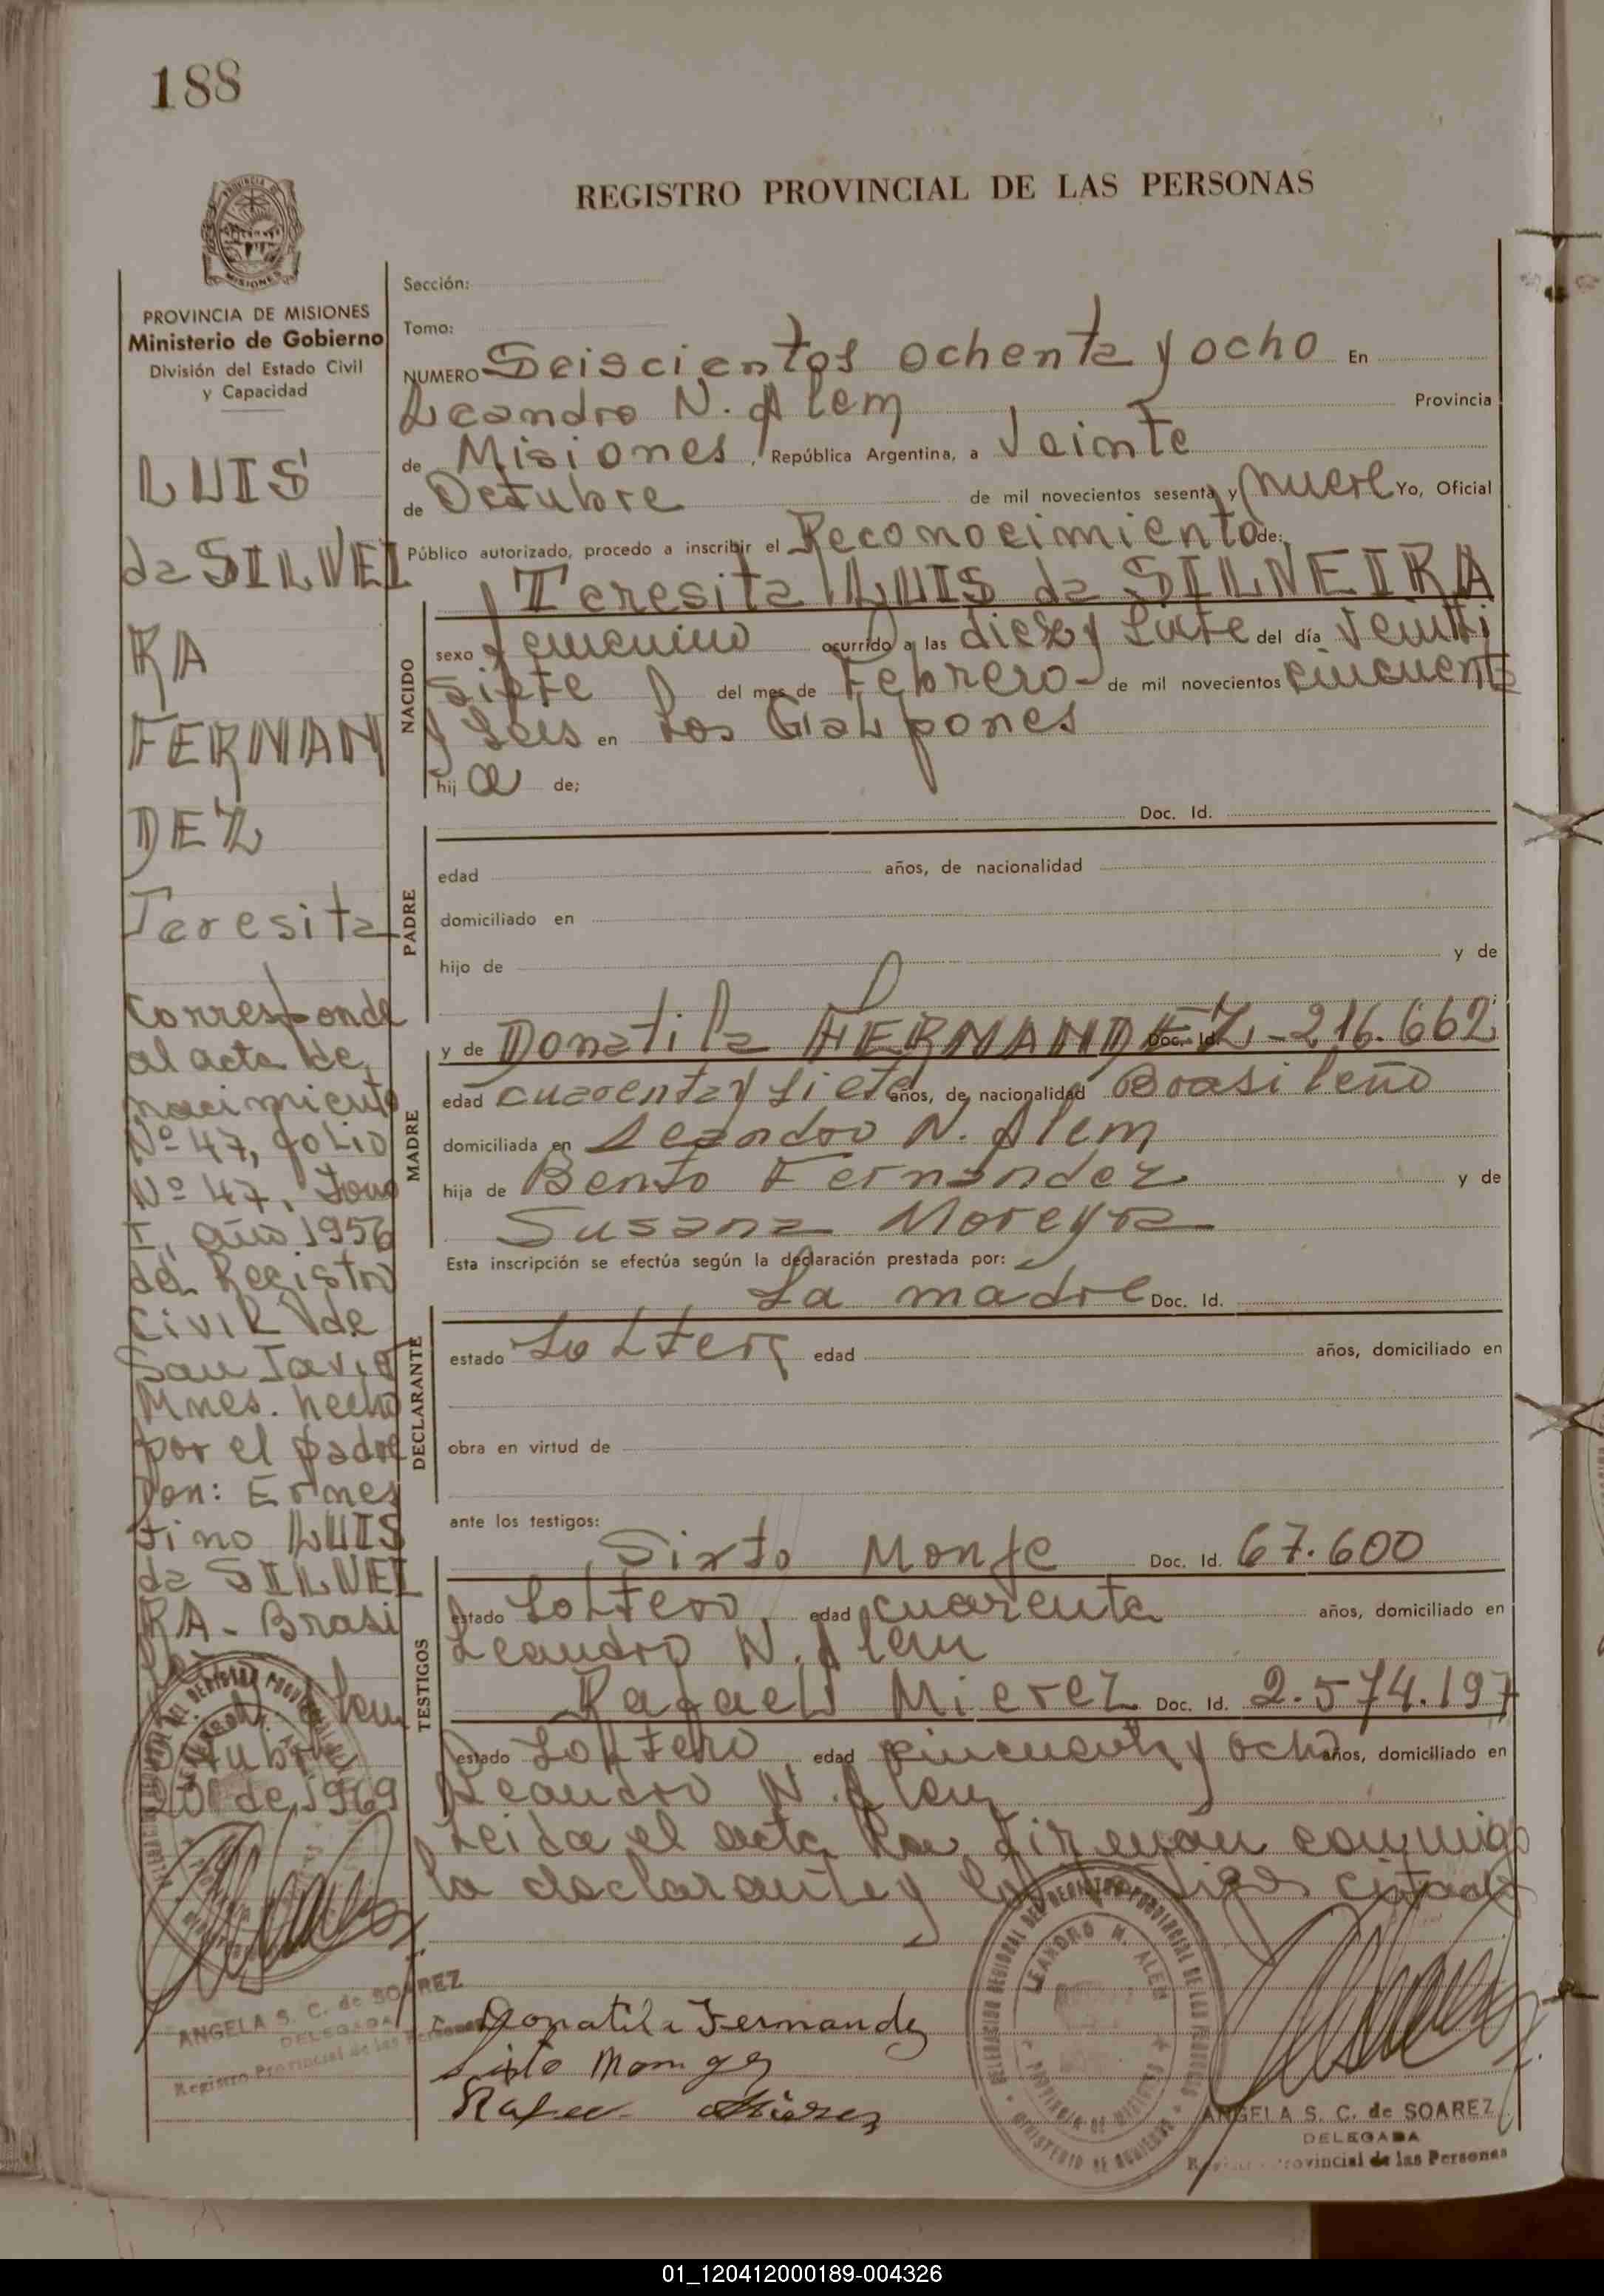 188
REGISTRO PROVINCIAL DE LAS PERSONAS
PROVINCIA DE MISIONES
Ministerio de Gobierno
División del Estado Civil
y Capacidad
LUIS
da SILVEI
RA
FERNAN
DEZ
Teresita
Corresponde
al acta de
nacimiento
Nº 47, folio
Nº 47, Tomo
I, año 1956
del Registro
Civil de
San Javier
Mnes. hecho
por el padre
Don: Ernes
tino LUIS
da SILVEI
RA - Brasi
Alem
Octubre
20 de 1969
ANGELA S. C. de SOAREZ
DELEGADA
Registro Provincial de las Personas
Sección:
Tomo:
NUMERO Seiscientos ochenta y ocho En
Leandro N. Alem Provincia
de Misiones, República Argentina, a Veinte
de Octubre de mil novecientos sesenta y nueve Yo, Oficial
Público autorizado, procedo a inscribir el Reconocimiento de:
Teresita LUIS da SILVEIRA
NACIDO
sexo femenino ocurrido a las diez y siete del día Veinti
siete del mes de Febrero de mil novecientos cincuenta
y seis en Los Galpones
hija de;
Doc. Id.
PADRE
edad años, de nacionalidad
domiciliado en
hijo de y de
MADRE
y de Donatila FERNANDEZ Doc. Id. 216.662
edad cuarenta y siete años, de nacionalidad Brasileño
domiciliada en Leandro N. Alem
hija de Bento Fernandez y de
Susana Moreyra
Esta inscripción se efectúa según la declaración prestada por:
La madre Doc. Id.
DECLARANTE
estado Soltera edad años, domiciliado en
obra en virtud de
ante los testigos:
TESTIGOS
Sixto Monje Doc. Id. 67.600
estado Soltero edad cuarenta años, domiciliado en
Leandro N. Alem
Rafael Mierez Doc. Id. 2.574.197
estado Soltero edad cincuenta y ocho años, domiciliado en
Leandro N. Alem
Leida el acta la firman conmigo
la declarante y los testigos citados
Donatila Fernandez
Sixto Monge
Rafael Mierez
DELEGACION REGIONAL DEL REGISTRO PROVINCIAL DE LAS PERSONAS
LEANDRO N. ALEM
PROVINCIA DE MISIONES
MINISTERIO DE GOBIERNO
ANGELA S. C. de SOAREZ
DELEGADA
Registro Provincial de las Personas
01_120412000189-004326